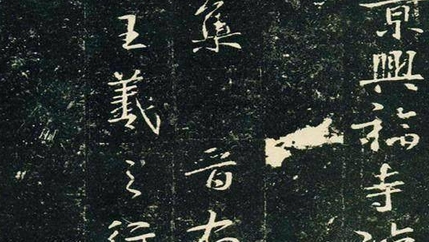 京興福寺
集晉右
王羲之行